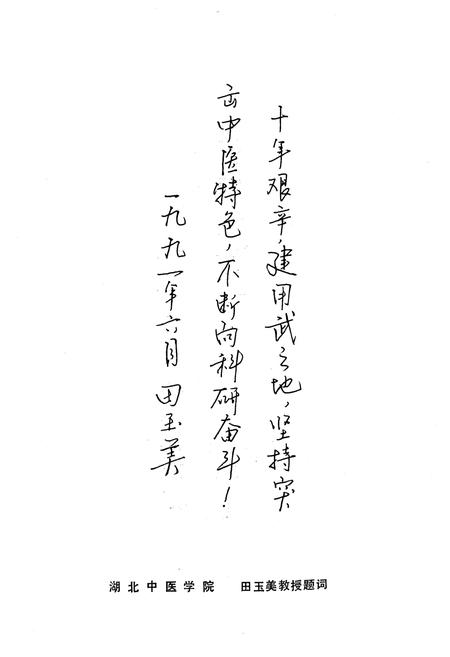 十年艰辛,建用武之地,坚持突
出中医特色,不断向科研奋斗!
一九九一年六月 田玉美
湖北中医学院 田玉美教授题词